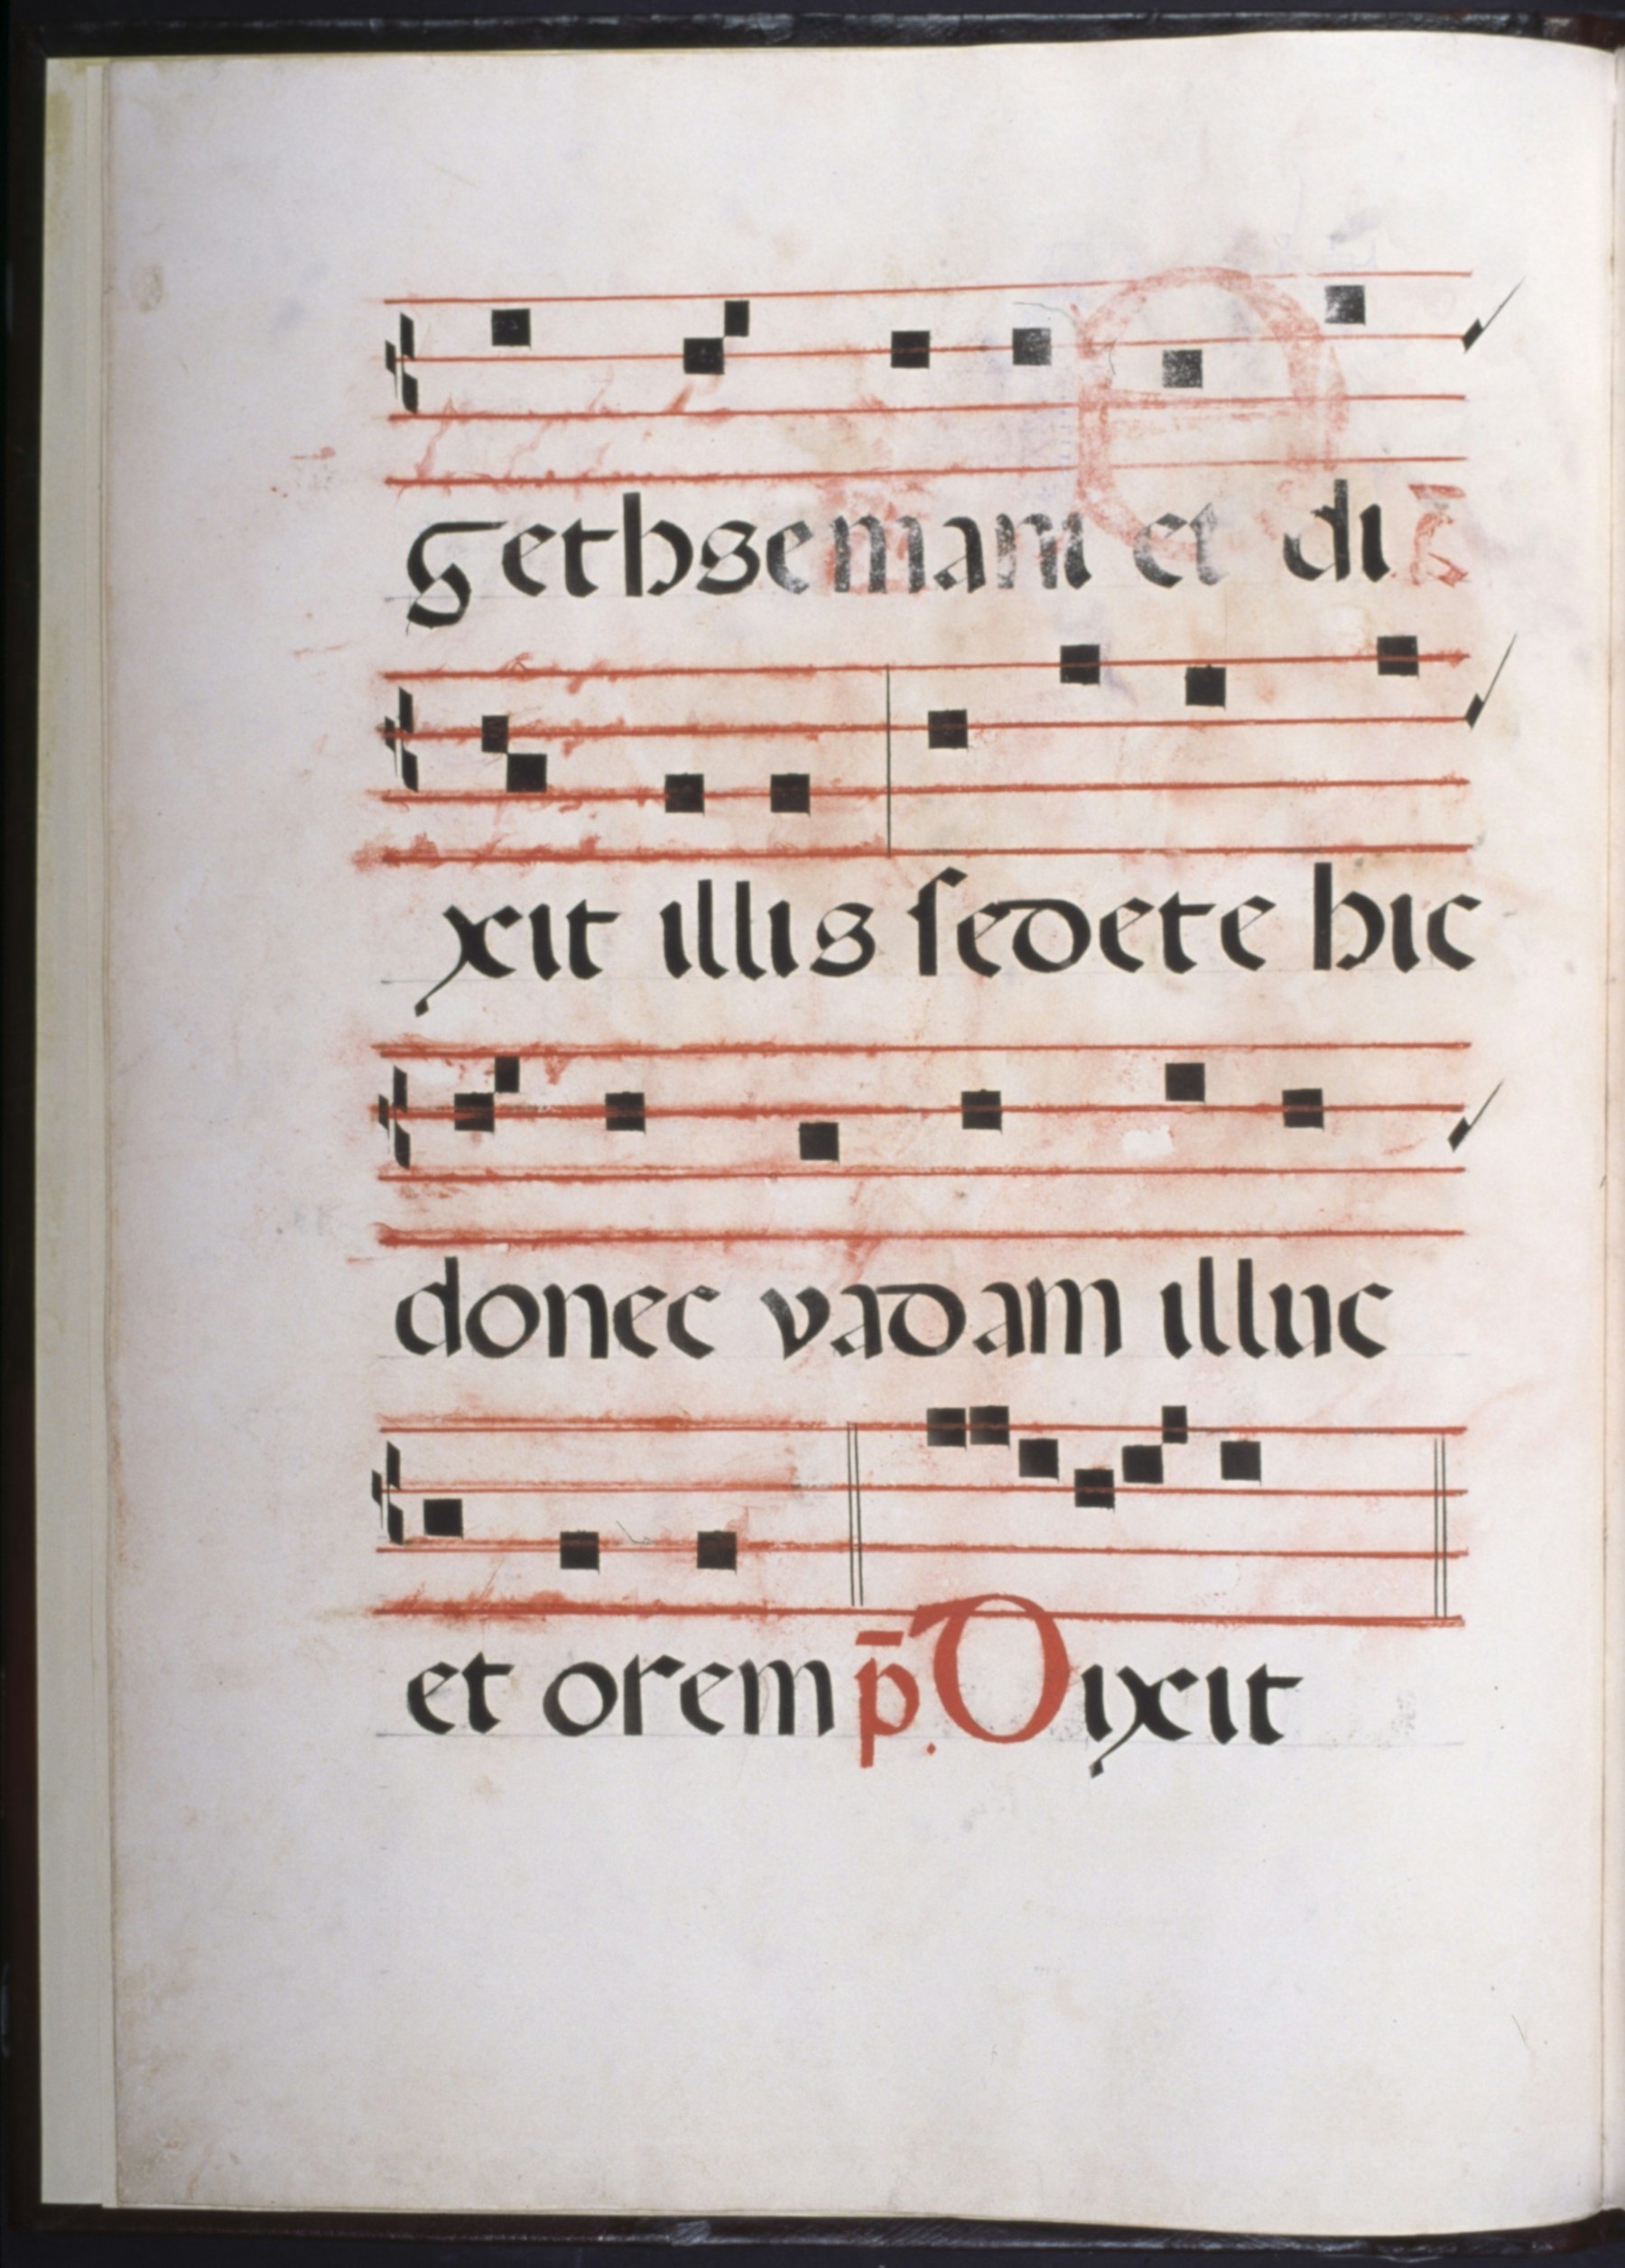 gethsemani et di
xit illis sedete hic
donec vadam illuc
et orem p̄. Dixit